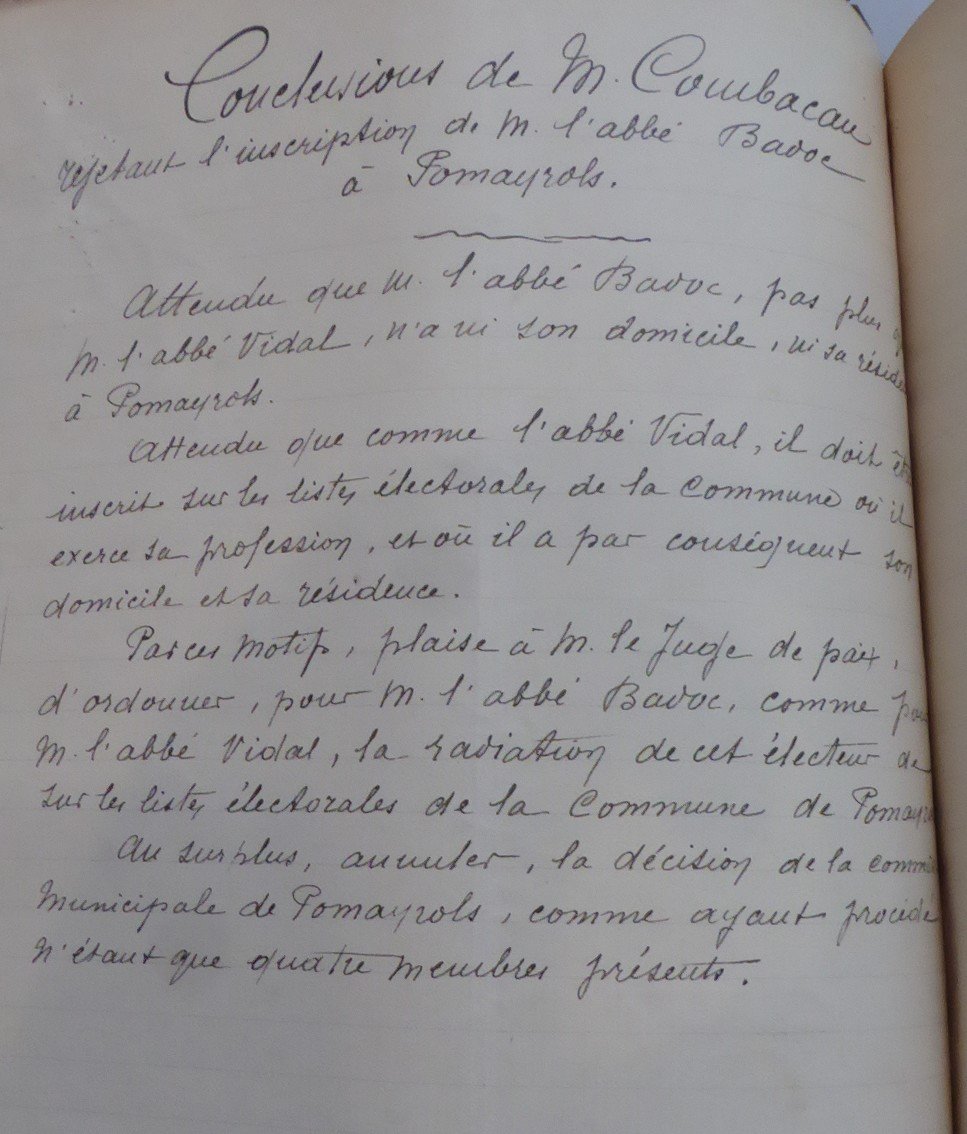 Conclusions de M. Combacau
rejetant l'inscription de M. l'abbé Badoc
à Pomayrols.
Attendu que M. l'abbé Badoc, pas plus
M. l'abbé Vidal, n'a ni son domicile, ni sa réside
à Pomayrols.
Attendu que comme l'abbé Vidal, il doit êt
inscrit sur les listes électorales de la Commune où il
exerce sa profession, et où il a par conséquent son
domicile et sa résidence.
Par ces motifs, plaise à M. le Juge de paix,
d'ordonner, pour M. l'abbé Badoc, comme po
M. l'abbé Vidal, la radiation de cet électeur de
sur les listes électorales de la Commune de Pomayro
Au surplus, annuler, la décision de la commi
Municipale de Pomayrols, comme ayant procédé
n'étant que quatre membres présents.